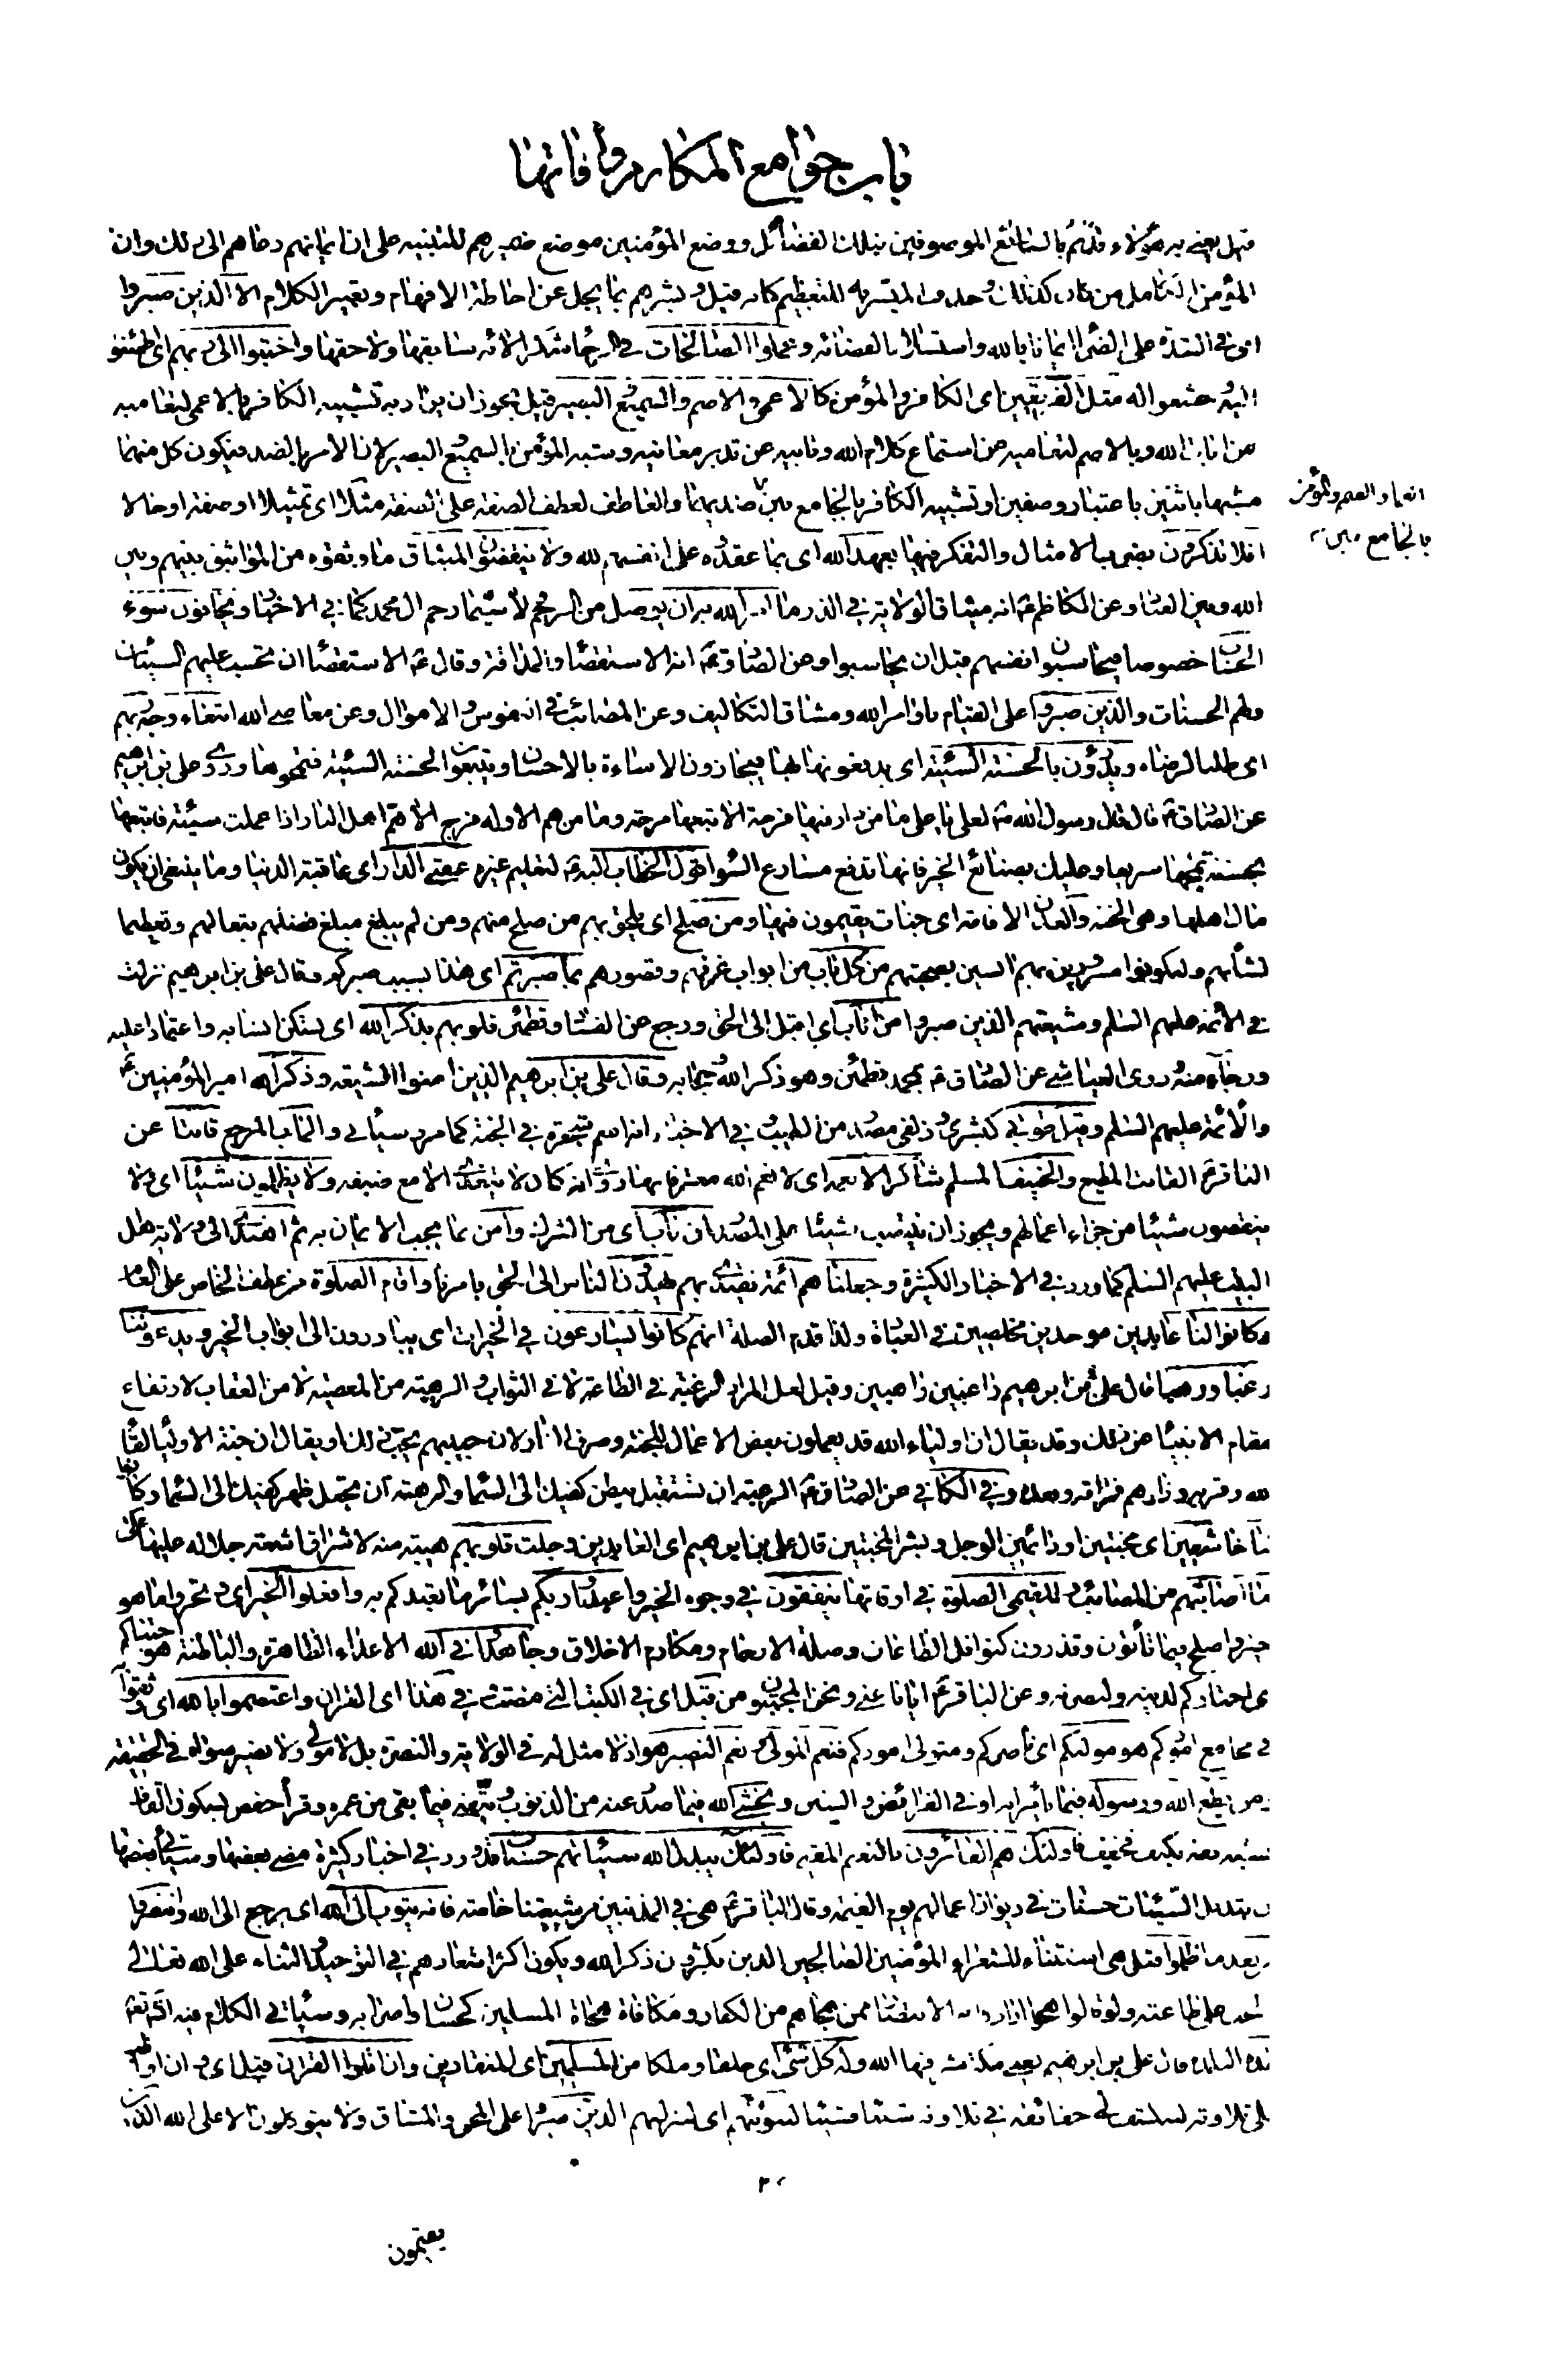 باب جوامع المكارم وآفاتها
قيل يعني به هؤلاء فإنهم بالشايع الموصوفين بتلك الفضائل ووضع المؤمنين موضع ضميرهم للتنبيه على ان ايمانهم دعاهم الى ذلك وان
المؤمن الكامل من كان كذلك وحذف المبشر به للتعظيم كانه قيل وبشرهم بما يجل عن احاطة الافهام وتعبير الكلام الا الذين صبروا
في الشدة على الضراء ايمانا بالله واستسلاما لقضائه وعملوا الصالحات في الرخاء شكرا لآلائه سابقها ولاحقها واخبتوا الى ربهم اي اطمئنوا
اليه وخشعوا له مثل الفريقين اي الكافر والمؤمن كالاعمى والاصم والسميع البصير قيل يجوز ان يراد به تشبيه الكافر بالاعمى لتعاميه
عن ايات الله وبالاصم لتصاميه عن استماع كلام الله وتأبيه عن تدبر معانيه وتشبيه المؤمن بالسميع البصير لان الامر بالضد فيكون كل منهما
مشبها باثنين باعتبار وصفين او تشبيه الكافر بالجامع بين ضديهما والعاطف لعطف الصفة على الصفة مثلا اي تمثيلا او صفة او حالا
العمى والصمم والمؤمن
بالجامع بين
افلا تذكرون بضرب الامثال والتفكر فيها بعهد الله اي بما عقدوه على انفسهم لله ولا ينقضون الميثاق ما وثقوه من المواثيق بينهم وبين
الله وبين العباد وعن الكاظم ع انه ميثاق الولاية في الذر ما امر الله به ان يوصل من الرحم لا سيما رحم ال محمد كما في الاخبار ويخافون سوء
الحساب خصوصا فيحاسبون انفسهم قبل ان يحاسبوا وعن الصادق ع انه الاستقصاء والمداقة وقال ع الاستقصاء ان تحسب عليهم السيئات
ولهم الحسنات والذين صبروا على القيام باوامر الله ومشاق التكاليف وعن المصائب في النفوس والاموال وعن معاصي الله ابتغاء وجه ربهم
اي طلبا لرضاه ويدرؤن بالحسنة السيئة اي يدفعونها بها فيجازون الاساءة بالاحسان او يتبعون الحسنة السيئة فتمحوها وروى علي بن ابرهيم
عن الصادق ع قال قال رسول الله ص لعلي يا علي ما من دار فيها فرحة الا تبعها ترحة وما من هم الا وله فرج الا هم اهل النار اذا عملت سيئة فاتبعها
بحسنة تمحها سريعا وعليك بصنائع الخير فانها تدفع مصارع السوء اقول الخطاب اليه ع لتعليم غيره عقبى الدار اي عاقبة الدنيا وما ينبغي ان يكون
مال اهلها وهي الجنة والعدن الاقامة اي جنات يقيمون فيها ومن صلح اي يلحق بهم من صلح منهم ومن لم يبلغ مبلغ فضلهم تبعا لهم وتعظيما
لشأنهم وليكونوا مسرورين بهم انسين بصحبتهم من كل باب من ابواب غرفهم وقصورهم بما صبرتم اي هذا بسبب صبركم وقال علي بن ابرهيم نزلت
في الائمة عليهم السلم وشيعتهم الذين صبروا من اناب اي اقبل الى الحق ورجع عن الفساد وتطمئن قلوبهم بذكر الله اي تسكن انسا به واعتمادا عليه
ورجاء منه وروى العياشي عن الصادق ع بمحمد تطمئن وهو ذكر الله وحجابه وقال علي بن ابرهيم الذين امنوا الشيعة وذكر الله امير المؤمنين ع
والائمة عليهم السلم وقيل طوبى كبشرى وزلفى مصدر من الطيب وفي الاخبار انه اسم شجرة في الجنة كما مر وسيأتي والمآب المرجع قانتا عن
الباقر ع القانت المطيع والحنيف المسلم شاكرا لانعمه اي لا نعم الله معترفا بها روي انه كان لا يتغدى الا مع ضيفه ولا يظلمون شيئا اي لا
ينقصون شيئا من جزاء اعمالهم ويجوز ان ينتصب شيئا على المصدر من تاب اي من الشرك وآمن بما يجب الايمان به ثم اهتدى الى ولاية اهل
البيت عليهم السلم كما ورد في الاخبار الكثيرة وجعلناهم ائمة يقتدى بهم يهدون الناس الى الحق بامرنا واقام الصلوة من عطف الخاص على العام
وكانوا لنا عابدين موحدين مخلصين في العبادة ولذا قدم الصلة انهم كانوا يسارعون في الخيرات اي يبادرون الى ابواب الخير ويدعوننا
رغبا ورهبا قال علي بن ابرهيم راغبين راهبين وقيل لعل المراد الرغبة في الطاعة لا في الثواب والرهبة من المعصية لا من العقاب لارتفاع
مقام الانبياء عن ذلك وقد يقال ان اولياء الله قد يعملون بعض الاعمال للجنة وصرف النار لان حبيبهم يحب ذلك او يقال ان جنة الاولياء لقاء
الله وقربه ونارهم فراقه وبعده وفي الكافي عن الصادق ع الرغبة ان تستقبل ببطن كفيك الى السماء والرهبة ان تجعل ظهر كفيك الى السماء وكانوا
لنا خاشعين اي مخبتين او دائمين الوجل وبشر المخبتين قال علي بن ابرهيم اي العابدين وجلت قلوبهم هيبة منه لاشراق اشعة جلاله عليها على
ما اصابهم من المصائب والمقيمي الصلوة في اوقاتها ينفقون في وجوه الخير واعبدوا ربكم بسائر ما تعبدكم به وافعلوا الخير اي وتحروا ما هو
خير واصلح فيما تأتون وتذرون كنوافل الطاعات وصلة الارحام ومكارم الاخلاق وجاهدوا في الله الاعداء الظاهرة والباطنة هو اجتباكم
اي اختاركم لدينه ولنصرته وعن الباقر ع ايانا عنى ونحن المجتبون من قبل اي في الكتب التي مضت وفي هذا اي القران واعتصموا بالله اي وثقوا به
في مجامع اموركم هو موليكم اي ناصركم ومتولى اموركم فنعم المولى ونعم النصير هو اذ لا مثل له في الولاية والنصرة بل لا مولى ولا نصير سواه في الحقيقة
ومن يطع الله ورسوله فيما يأمرانه او في الفرائض والسنن ويخشى الله فيما صدر عنه من الذنوب ويتقه فيما بقي من عمره وقرأ حفص بسكون القاف
شبه تقه بكتف فخفف فاولئك هم الفائزون بالنعيم المقيم فاولئك يبدل الله سيئاتهم حسنات قد ورد في اخبار كثيرة مضى بعضها وسيأتي بعضها
تبديل السيئات حسنات في ديوان اعمالهم يوم القيمة وقال الباقر ع هي في المذنبين من شيعتنا خاصة فانه يتوب الى الله اي يرجع الى الله وانتصروا
من بعد ما ظلموا قيل هي استثناء للشعراء المؤمنين الصالحين الذين يكثرون ذكر الله ويكون اكثر اشعارهم في التوحيد والثناء على الله تعالى
والحث على طاعته ولو قالوا هجوا ارادوا به الانتصار ممن هجاهم من الكفار ومكافاة هجاة المسلمين كحسان واضرابه وسيأتي الكلام فيه انشاء الله تعالى
هذه البلدة قال علي بن ابرهيم يعني مكة شرفها الله وله كل شئ اي خلقا وملكا من المسلمين اي المنقادين وان اتلوا القران قيل اي وان اواظب
على تلاوته لينكشف لي حقائقه في تلاوته شيئا فشيئا لنبوئنهم اي لننزلنهم الذين صبروا على المحن والمشاق ولا يتوكلون الا على الله الذين
يعتمون